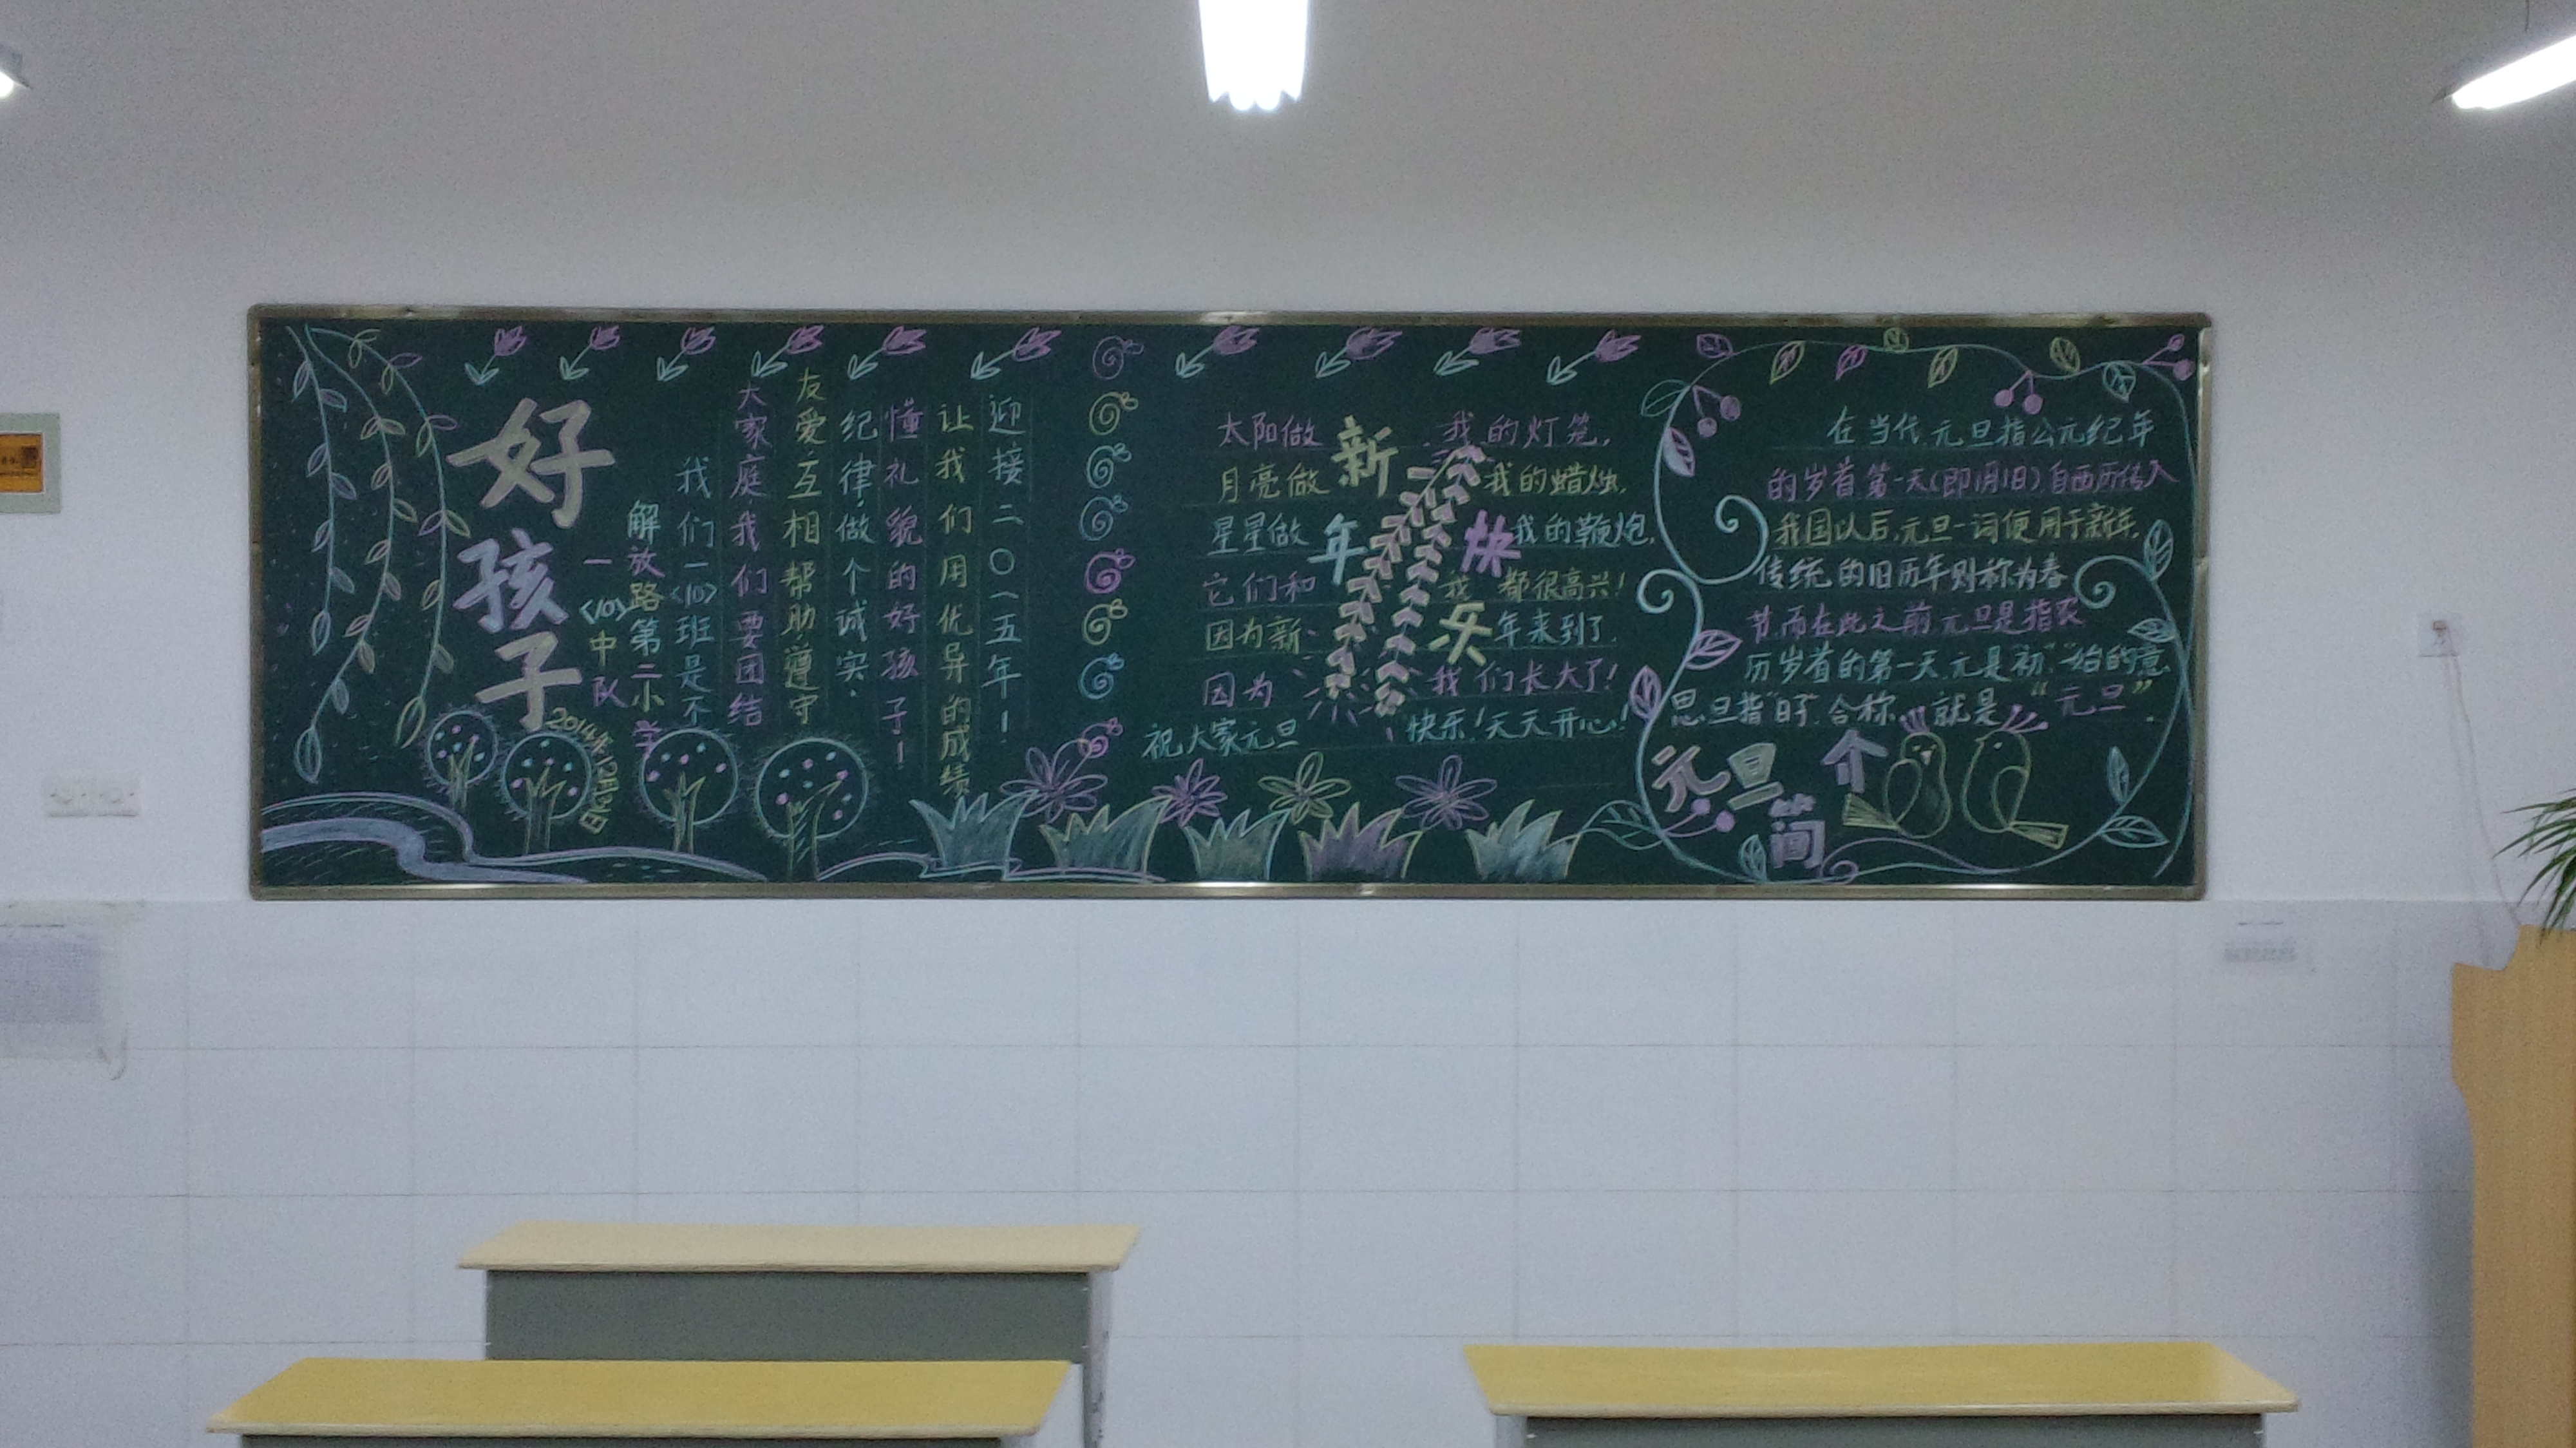 好孩子
一〈10〉中队
解放路第二小学
2014年12月31日
我们一〈10〉班是个
大家庭,我们要团结
友爱.互相帮助.遵守
纪律.做个诚实.
懂礼貌的好孩子!
让我们用优异的成绩
迎接二〇一五年!
新年快乐
太阳做 我的灯笼,
月亮做 我的蜡烛,
星星做 我的鞭炮,
它们和 我 都很高兴!
因为新 年来到了,
因为 我们长大了!
祝大家元旦 快乐!天天开心!
在当代,元旦指公元纪年
的岁首第一天(即1月1日).自西历传入
我国以后,元旦一词便用于新年,
传统的旧历年则称为春
节.而在此之前,元旦是指农
历岁首的第一天.元是“初”“始”的意
思,旦指“日子”,合称,就是“元旦”.
元旦简介